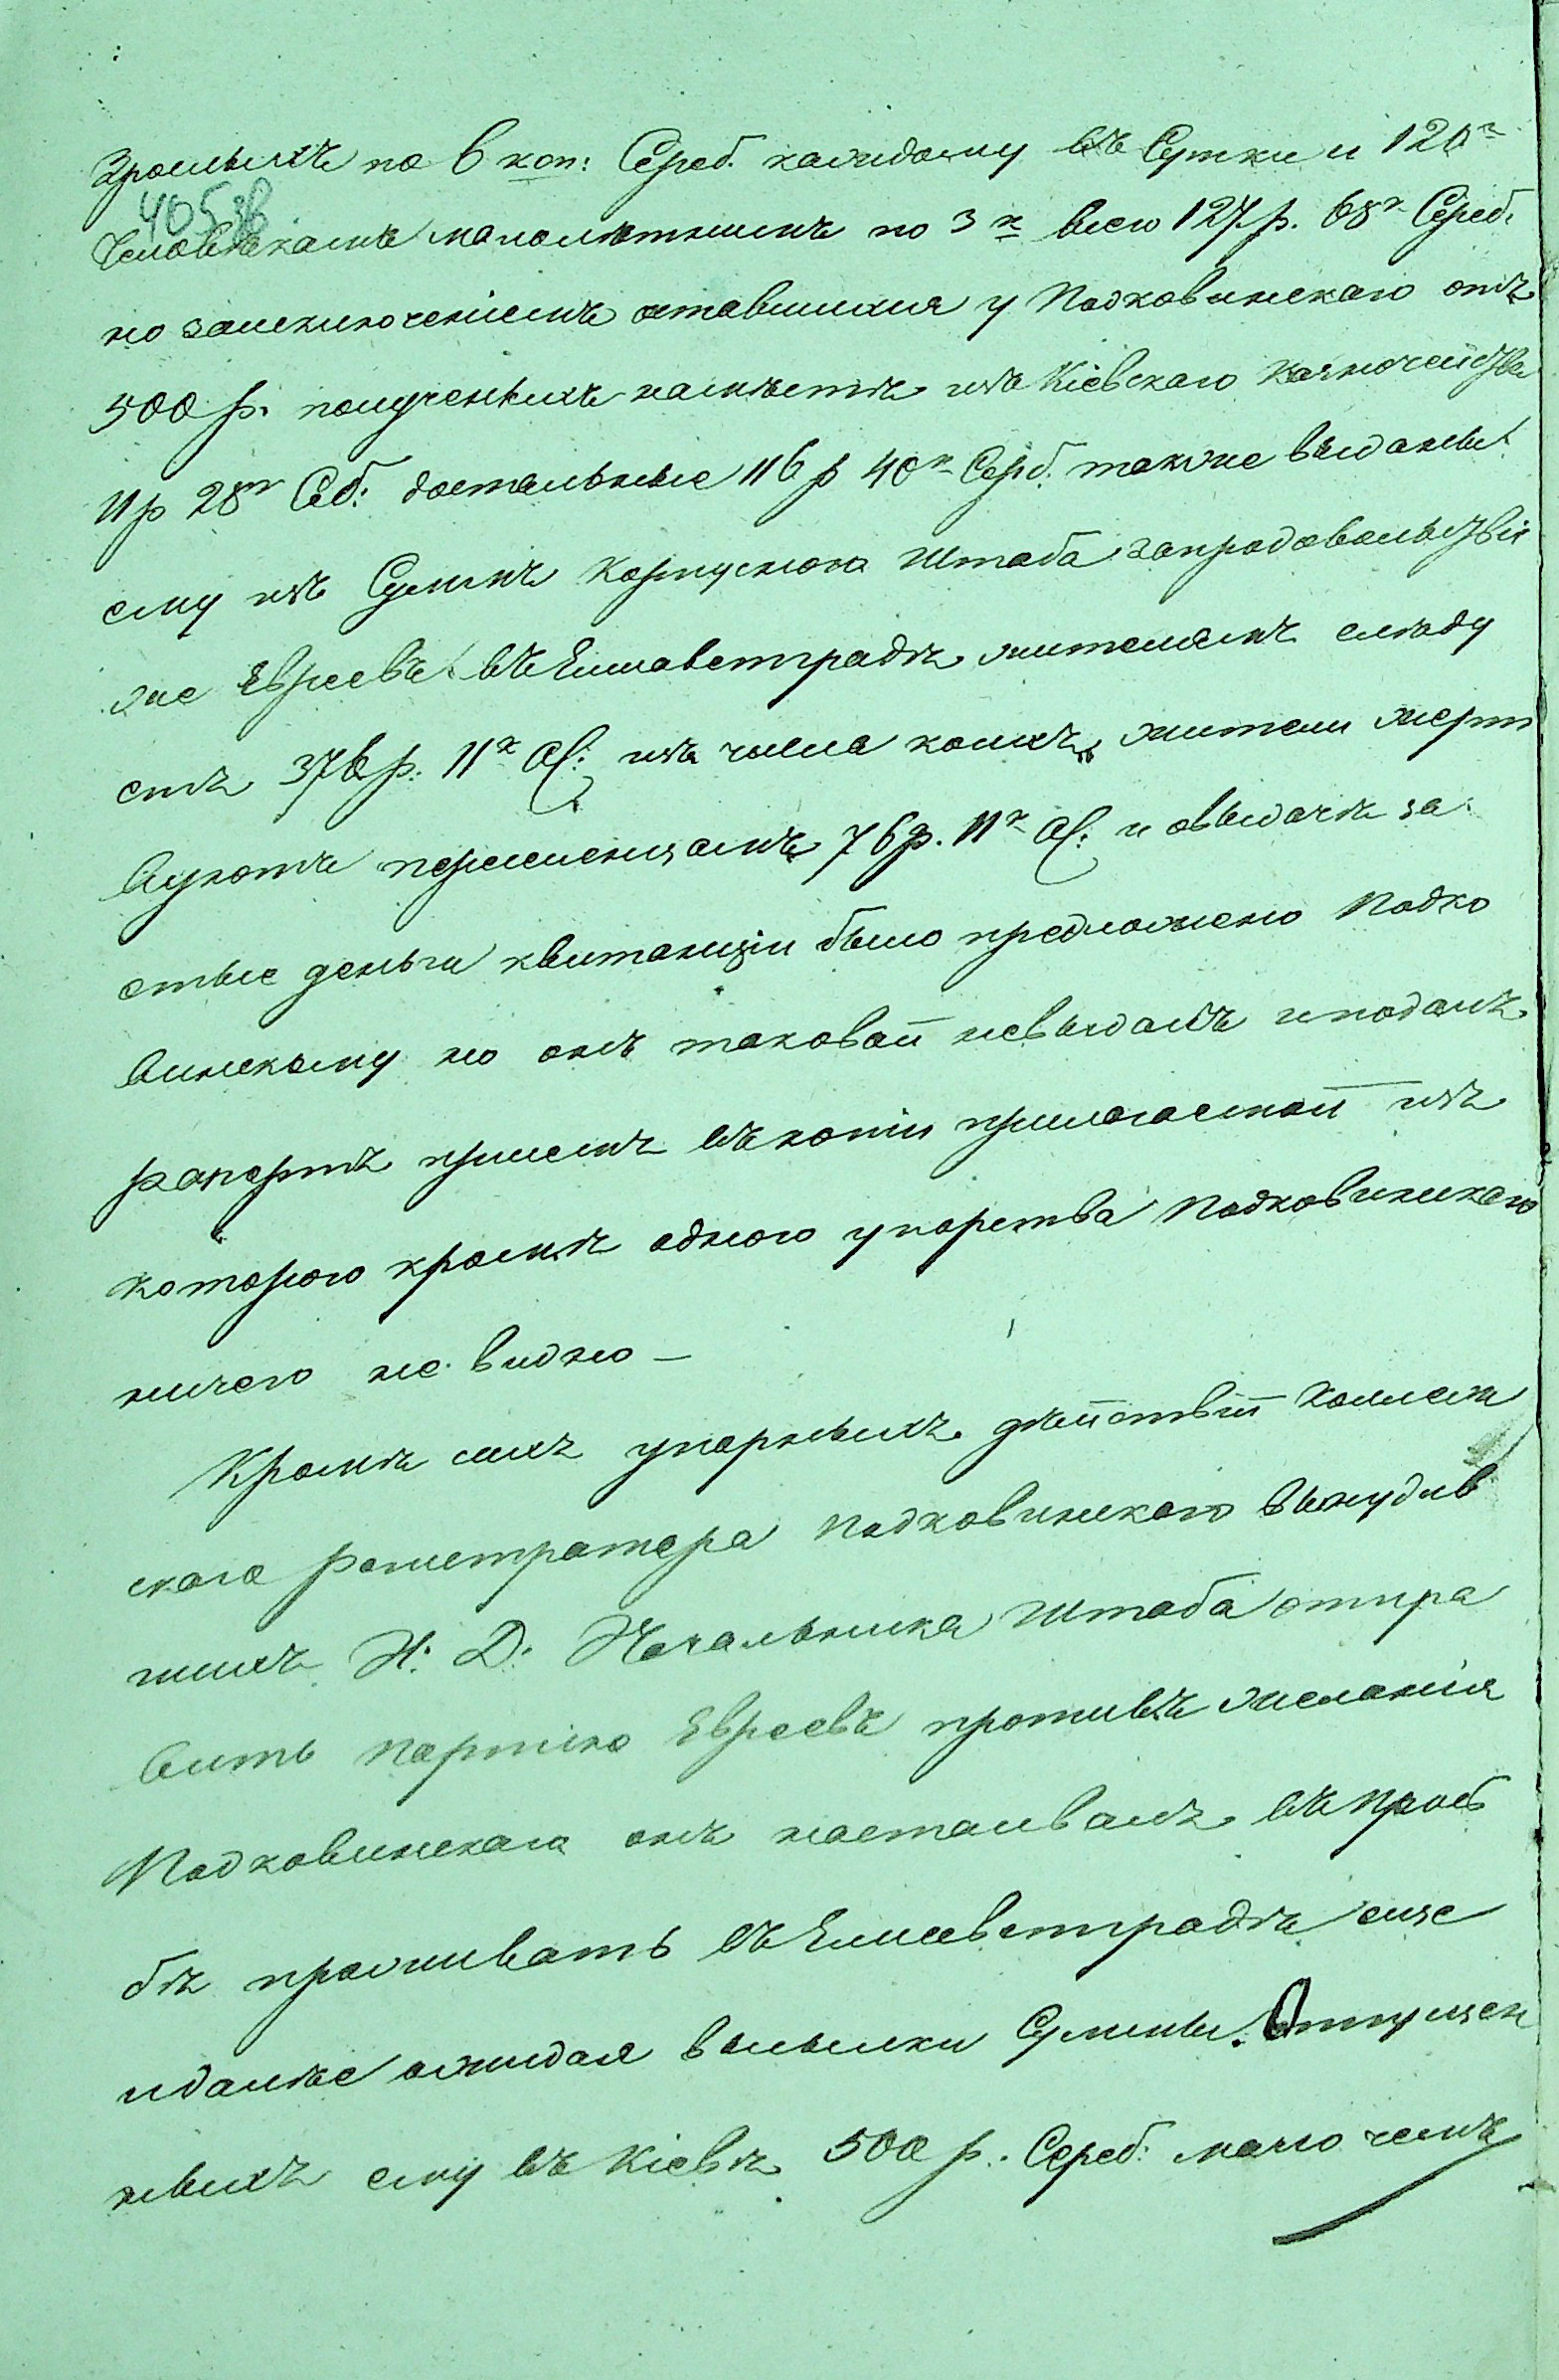 зрослыхъ по 6 коп: Сереб. каждому въ Сутки и 120ᵗⁱ
405 зв
Человѣкамъ малолѣтнимъ по 3 к всего 127 р. 68 к Сереб.
но заисключеніемъ оставшихся у Подковинскаго отъ
500 р. полученныхъ намѣстѣ изъ Кіевскаго Казначейства
11 р 28 к Сб: достальные 116 р 40 к Серб. также выданы
ему изъ Суммъ Корпуснаго Штаба. запродовольствіе
же Евреевъ въ Елисаветградѣ жителямъ слѣду
етъ 376 р. 11 к Ср: изъ числа коихъ жители жерт
вуютъ переселенцамъ 76 р. 11 к Ср: и овыдачѣ за
етые деньги квитанціи было предложено Подко
винскому но онъ таковой невыдалъ иподалъ
рапортъ присемъ въ копіи прилагаемой изъ
котораго кромѣ одного упорства Подковинскаго
ничего не видно —
Кромѣ сихъ упорныхъ дѣйствій Коллеж
скаго Регистратора Подковинскаго вынудив
шихъ И: Д: Начальника Штаба отпра
вить партію Евреевъ противъ желанія
Подковинскаго онъ настаивалъ въ прось
бѣ проживать въ Елисаветградѣ еще
идалѣе ожидая высылки Суммы. Отпущен
ныхъ ему въ Кіевѣ 500 р. Сереб: мало чемъ